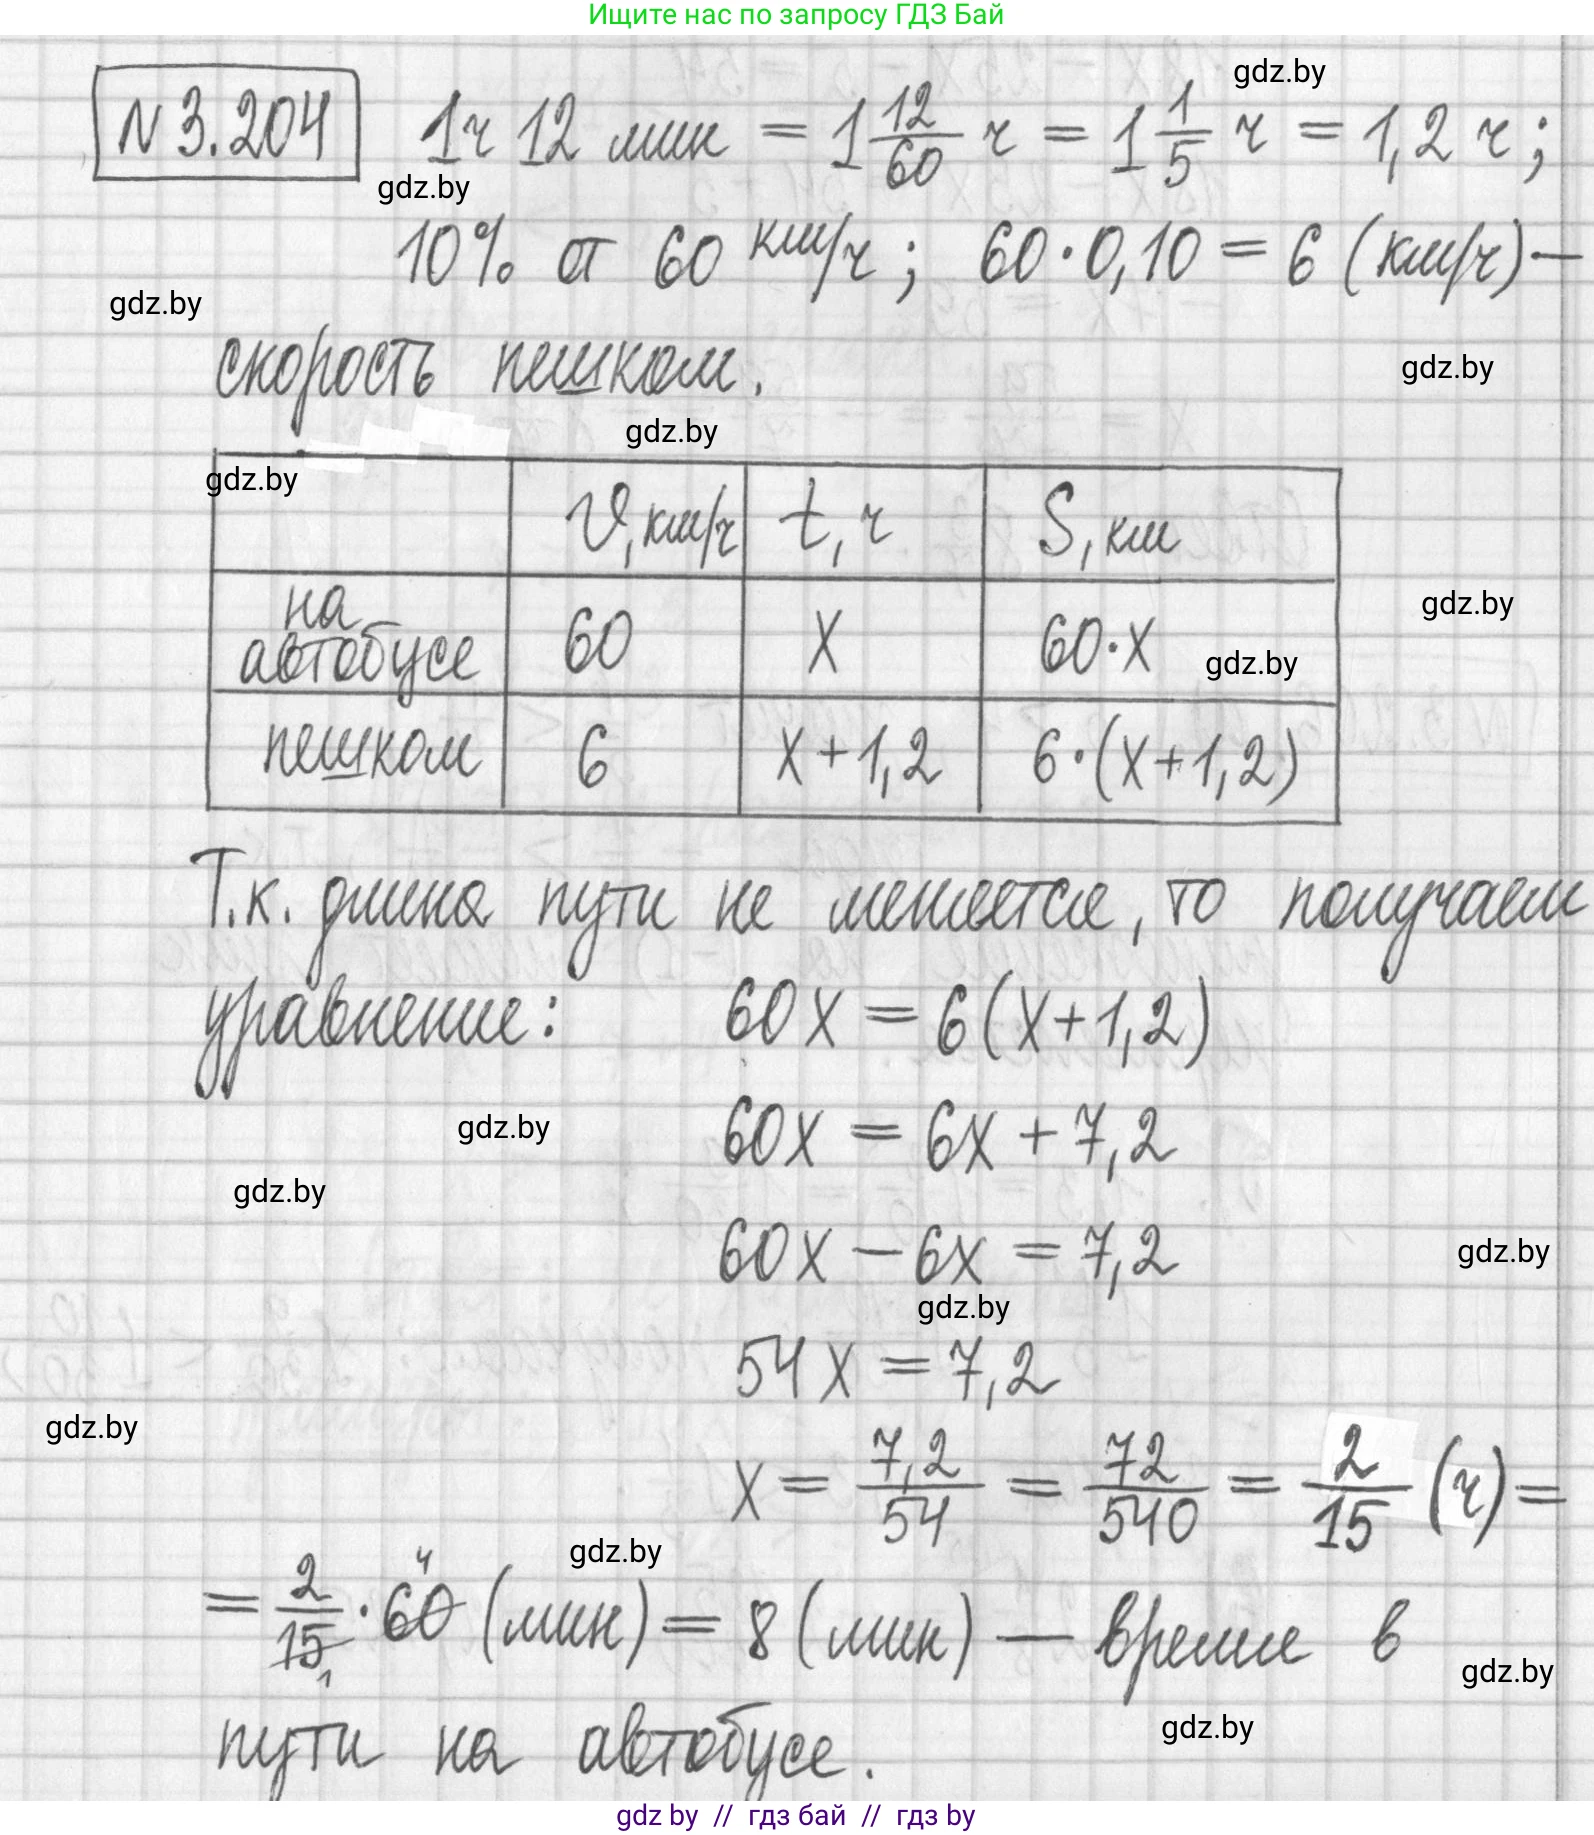 Ищите нас по запросу ГДЗ Бай
gdz.by
N 3.204 1ч 12 мин = 1 12/60 ч = 1 1/5 ч = 1,2 ч;
gdz.by
10% от 60 км/ч; 60·0,10 = 6 (км/ч) —
gdz.by
скорость пешком.
gdz.by
gdz.by
gdz.by
υ, км/ч t, ч S, км
на автобусе 60 x 60·x
gdz.by
gdz.by
пешком 6 x+1,2 6·(x+1,2)
Т.к. длина пути не меняется, то получаем
уравнение: 60x = 6(x+1,2)
gdz.by
60x = 6x + 7,2
gdz.by
60x − 6x = 7,2
gdz.by
gdz.by
54x = 7,2
gdz.by
x = 7,2/54 = 72/540 = 2/15 (ч) =
gdz.by
= 2/15 1 · 60 4 (мин) = 8 (мин) — время в
gdz.by
gdz.by
пути на автобусе.
gdz by // гдз бай // гдз by